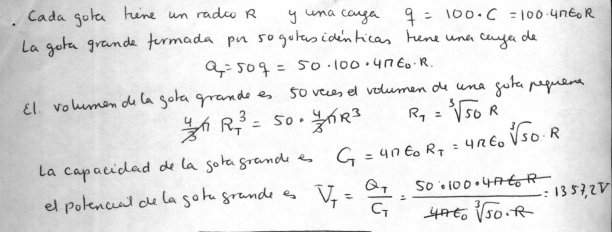 . Cada gota tiene un radio R y una carga q = 100·C = 100·4πε₀R
La gota grande formada por 50 gotas idénticas tiene una carga de
Q_T = 50q = 50·100·4πε₀·R.
El volumen de la gota grande es 50 veces el volumen de una gota pequeña
4/3 π R_T³ = 50·4/3 π R³ R_T = ∛50 R
La capacidad de la gota grande es C_T = 4πε₀ R_T = 4πε₀ ∛50·R
el potencial de la gota grande es V_T = Q_T/C_T = 50·100·4πε₀R / 4πε₀ ∛50·R = 1357,2V